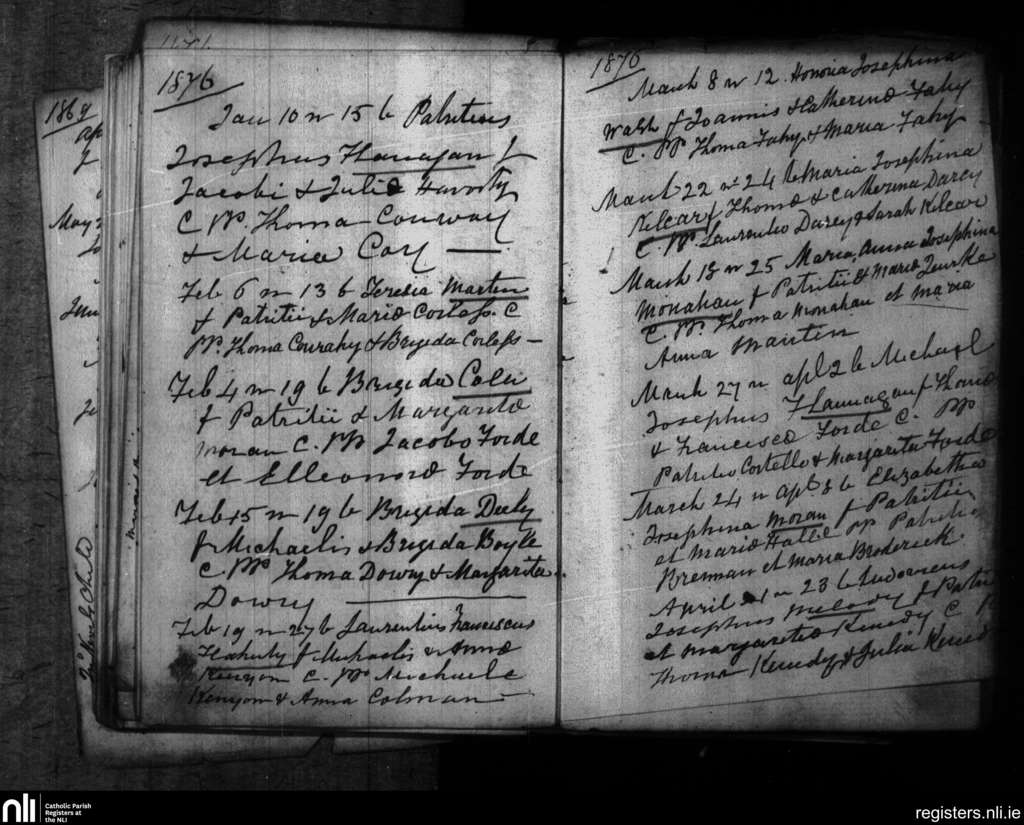 1876
Jan 10 n 15 b Patritius
Josephus Flanagan f
Jacobi & Julia Haverty
C PP. Thoma Conway
& Maria Coy —
Feb 6 n 13 b Teresia Martin
f Patritii & Maria Corless. C
PP. Thoma Courahy & Brigida Corless —
Feb 4 n 19 b Brigida Colin
f Patritii & Margarita
Moran C. PP Jacobo Forde
et Elleonora Forde
Feb 15 n 19 b Brigida Deely
f Michaelis & Brigida Boyle
C PP. Thoma Dowry & Margarita
Dowry —
Feb 19 n 27 b Laurentius Franciscus
Flaherty f Michaelis & Anna
Kenyon C. PP Michaele
Kenyon & Anna Colman —
1876
March 8 n 12. Honoria Josephina
Walsh f Joannis & Catherina Fahy
C. PP Thoma Fahy & Maria Fahy
March 22 n 24 b Maria Josephina
Kilcar f Thoma & Catherina Darcy
C. PP. Laurentio Darcy & Sarah Kilcar
March 18 n 25 Maria Anna Josephina
Monahan f Patritii & Maria
C. PP. Thoma Monahan et Maria
Anna Martin
March 27 n apl 2 b Michael
Josephus Flannagan f Thoma
& Francisca Forde C. PP
Patritio Costello & Margarita Forde
March 24 n apl 8 b Elizabetha
Josephina Moran f Patritii
et Maria PP Patritio
Brennan et Maria Broderick
April 21 n 23 b Ludovicus
Josephus Melody f Patri
et Margarita Kenedy C. P
Thoma Kenedy & Julia Kened
1869
May
nli
Catholic Parish
Registers at
the NLI
registers.nli.ie